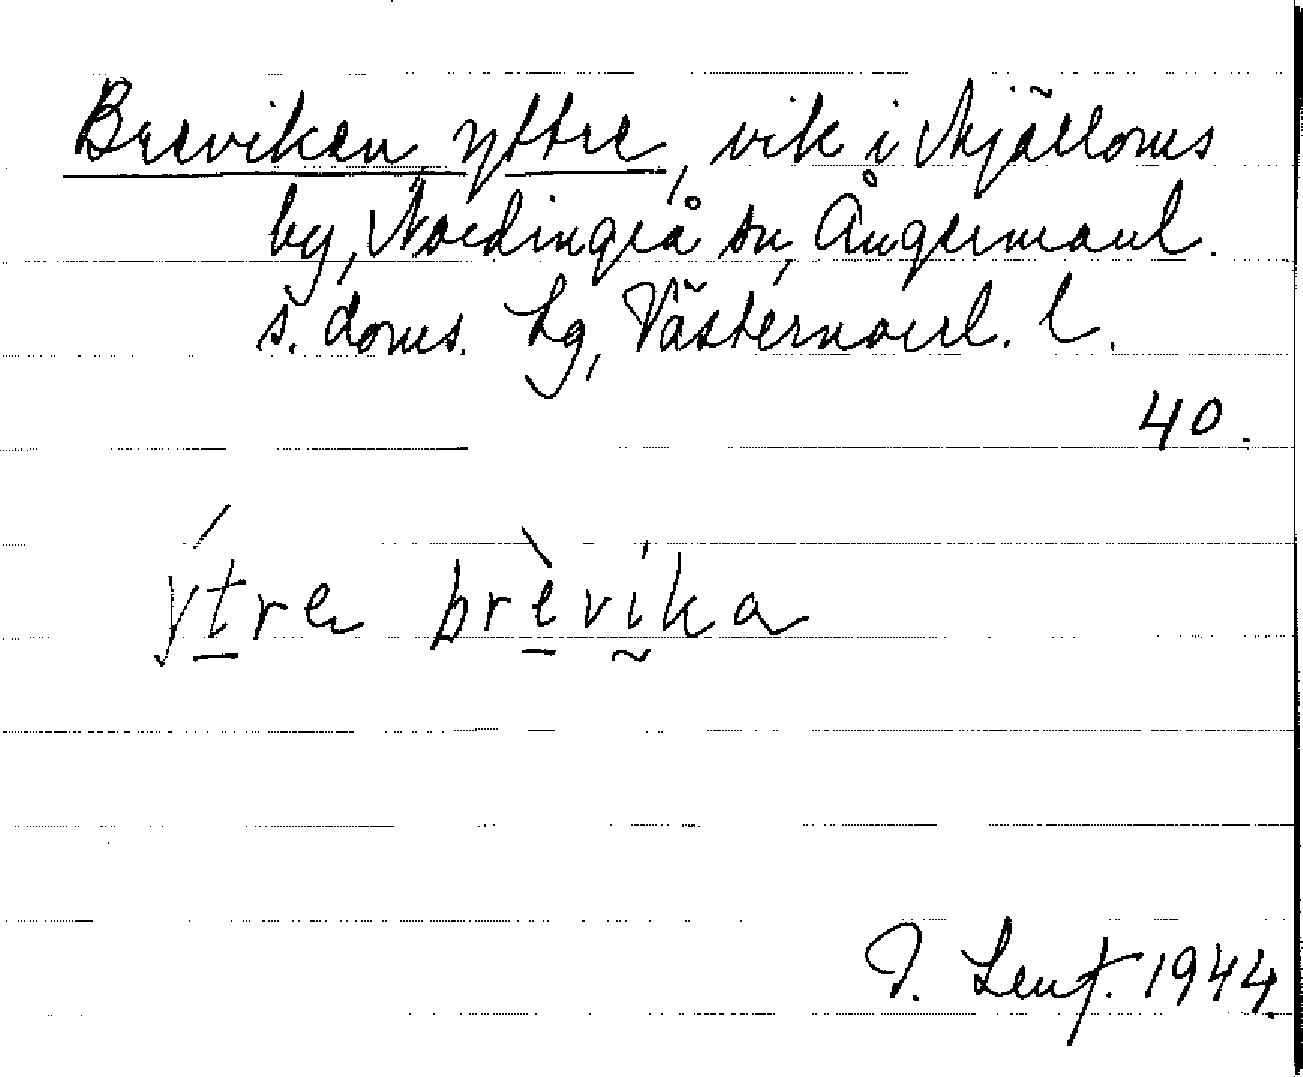 Breviken, yttre, vik i Mjälloms
by, Nordingrå sn, Ångermanl.
s. doms. hg, Västernorrl. l.
40.
ýtre brèvika
J. Lenf. 1944.